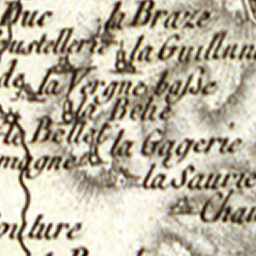 Duc la Braze
la Guillau
de la Vergne basse
la Belie
le Bellot
la Gagerie
magne
la Saurie
Chau
outure